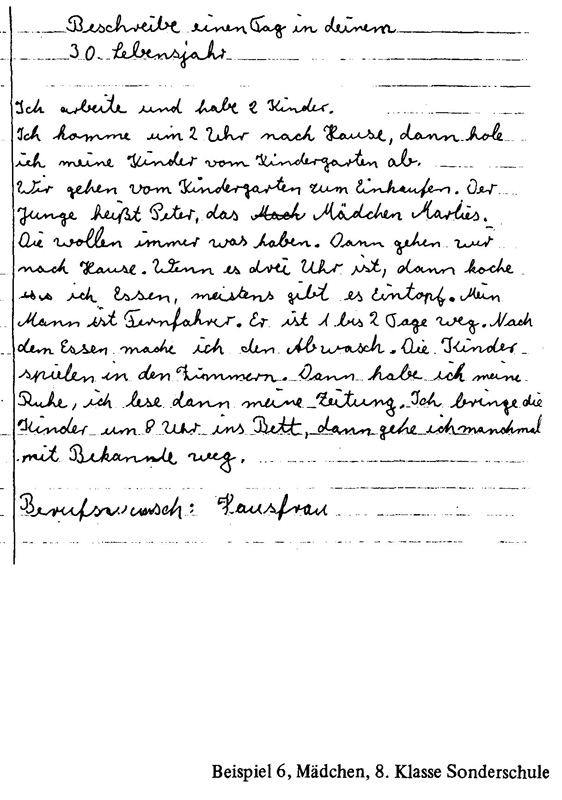 Beschreibe einen Tag in deinem
30. Lebensjahr
Ich arbeite und habe 2 Kinder.
Ich komme um 2 Uhr nach Hause, dann hole
ich meine Kinder vom Kindergarten ab.
Wir gehen vom Kindergarten zum Einkaufen. Der
Junge heißt Peter, das Mädchen Marlies.
Die wollen immer was haben. Dann gehen wir
nach Hause. Wenn es drei Uhr ist, dann koche
ich Essen, meistens gibt es Eintopf. Mein
Mann ist Fernfahrer. Er ist 1 bis 2 Tage weg. Nach
dem Essen mache ich den Abwasch. Die Kinder
spielen in den Zimmern. Dann habe ich meine
Ruhe, ich lese dann meine Zeitung. Ich bringe die
Kinder um 8 Uhr ins Bett, dann gehe ich manchmal
mit Bekannte weg.
Berufswunsch: Hausfrau
Beispiel 6, Mädchen, 8. Klasse Sonderschule